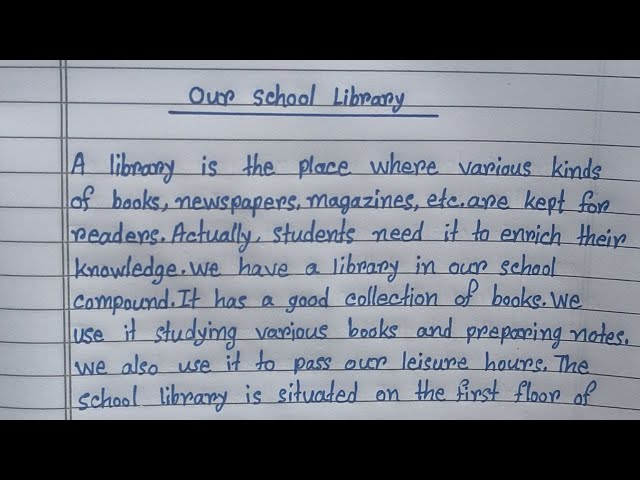 Our School Library
A library is the place where various kinds
of books, newspapers, magazines, etc. are kept for
readers. Actually, students need it to enrich their
knowledge. We have a library in our school
compound. It has a good collection of books. We
use it studying various books and preparing notes.
We also use it to pass our leisure hours. The
school library is situated on the first floor of